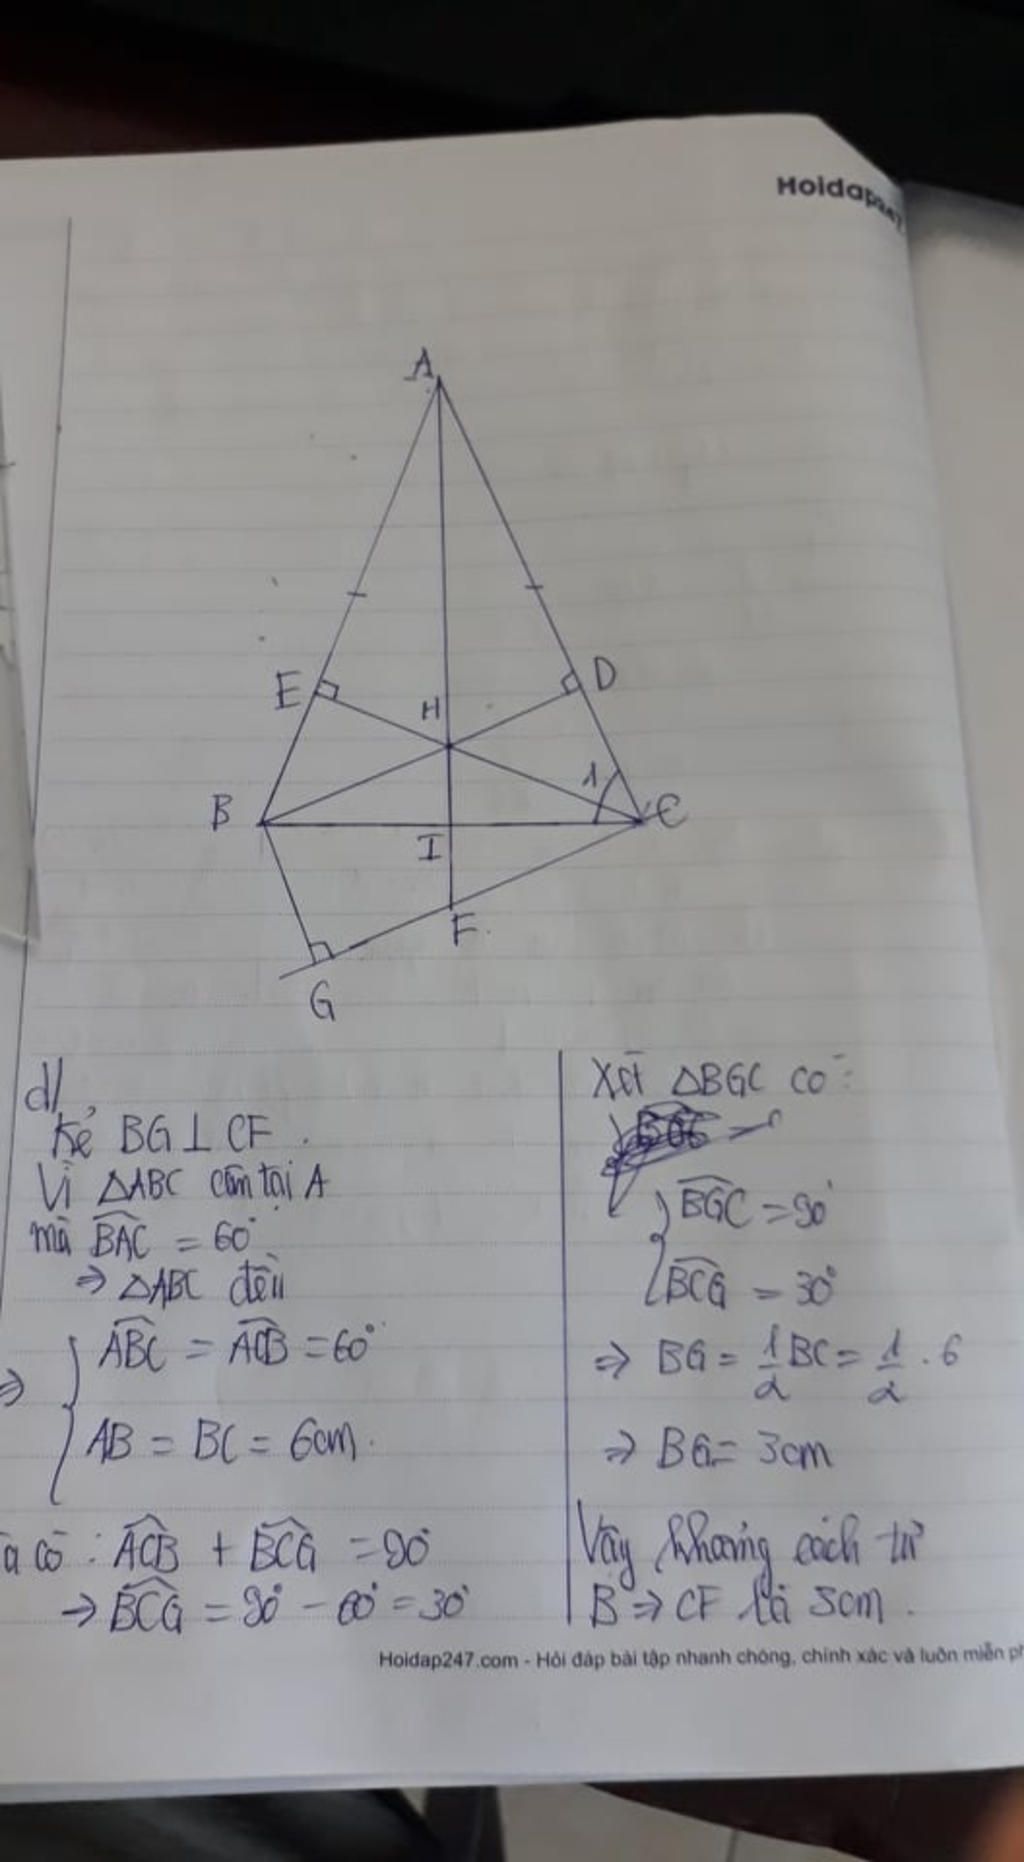 Hoidap247
A
E
D
H
B
1
C
I
F
G
d/
Kẻ BG⊥CF.
Vì ΔABC cân tại A
mà BAC = 60°
⇒ ΔABC đều
⇒ { ABC = ACB = 60°
AB = BC = 6cm.
a có: ACB + BCG = 90°
→ BCG = 90° - 60° = 30°
Xét ΔBGC có:
{ BGC = 90°
BCG = 30°
⇒ BG = 1/2 BC = 1/2 . 6
⇒ BG = 3cm
Vậy khoảng cách từ
B ⇒ CF là 3cm.
Hoidap247.com - Hỏi đáp bài tập nhanh chóng, chính xác và luôn miễn ph